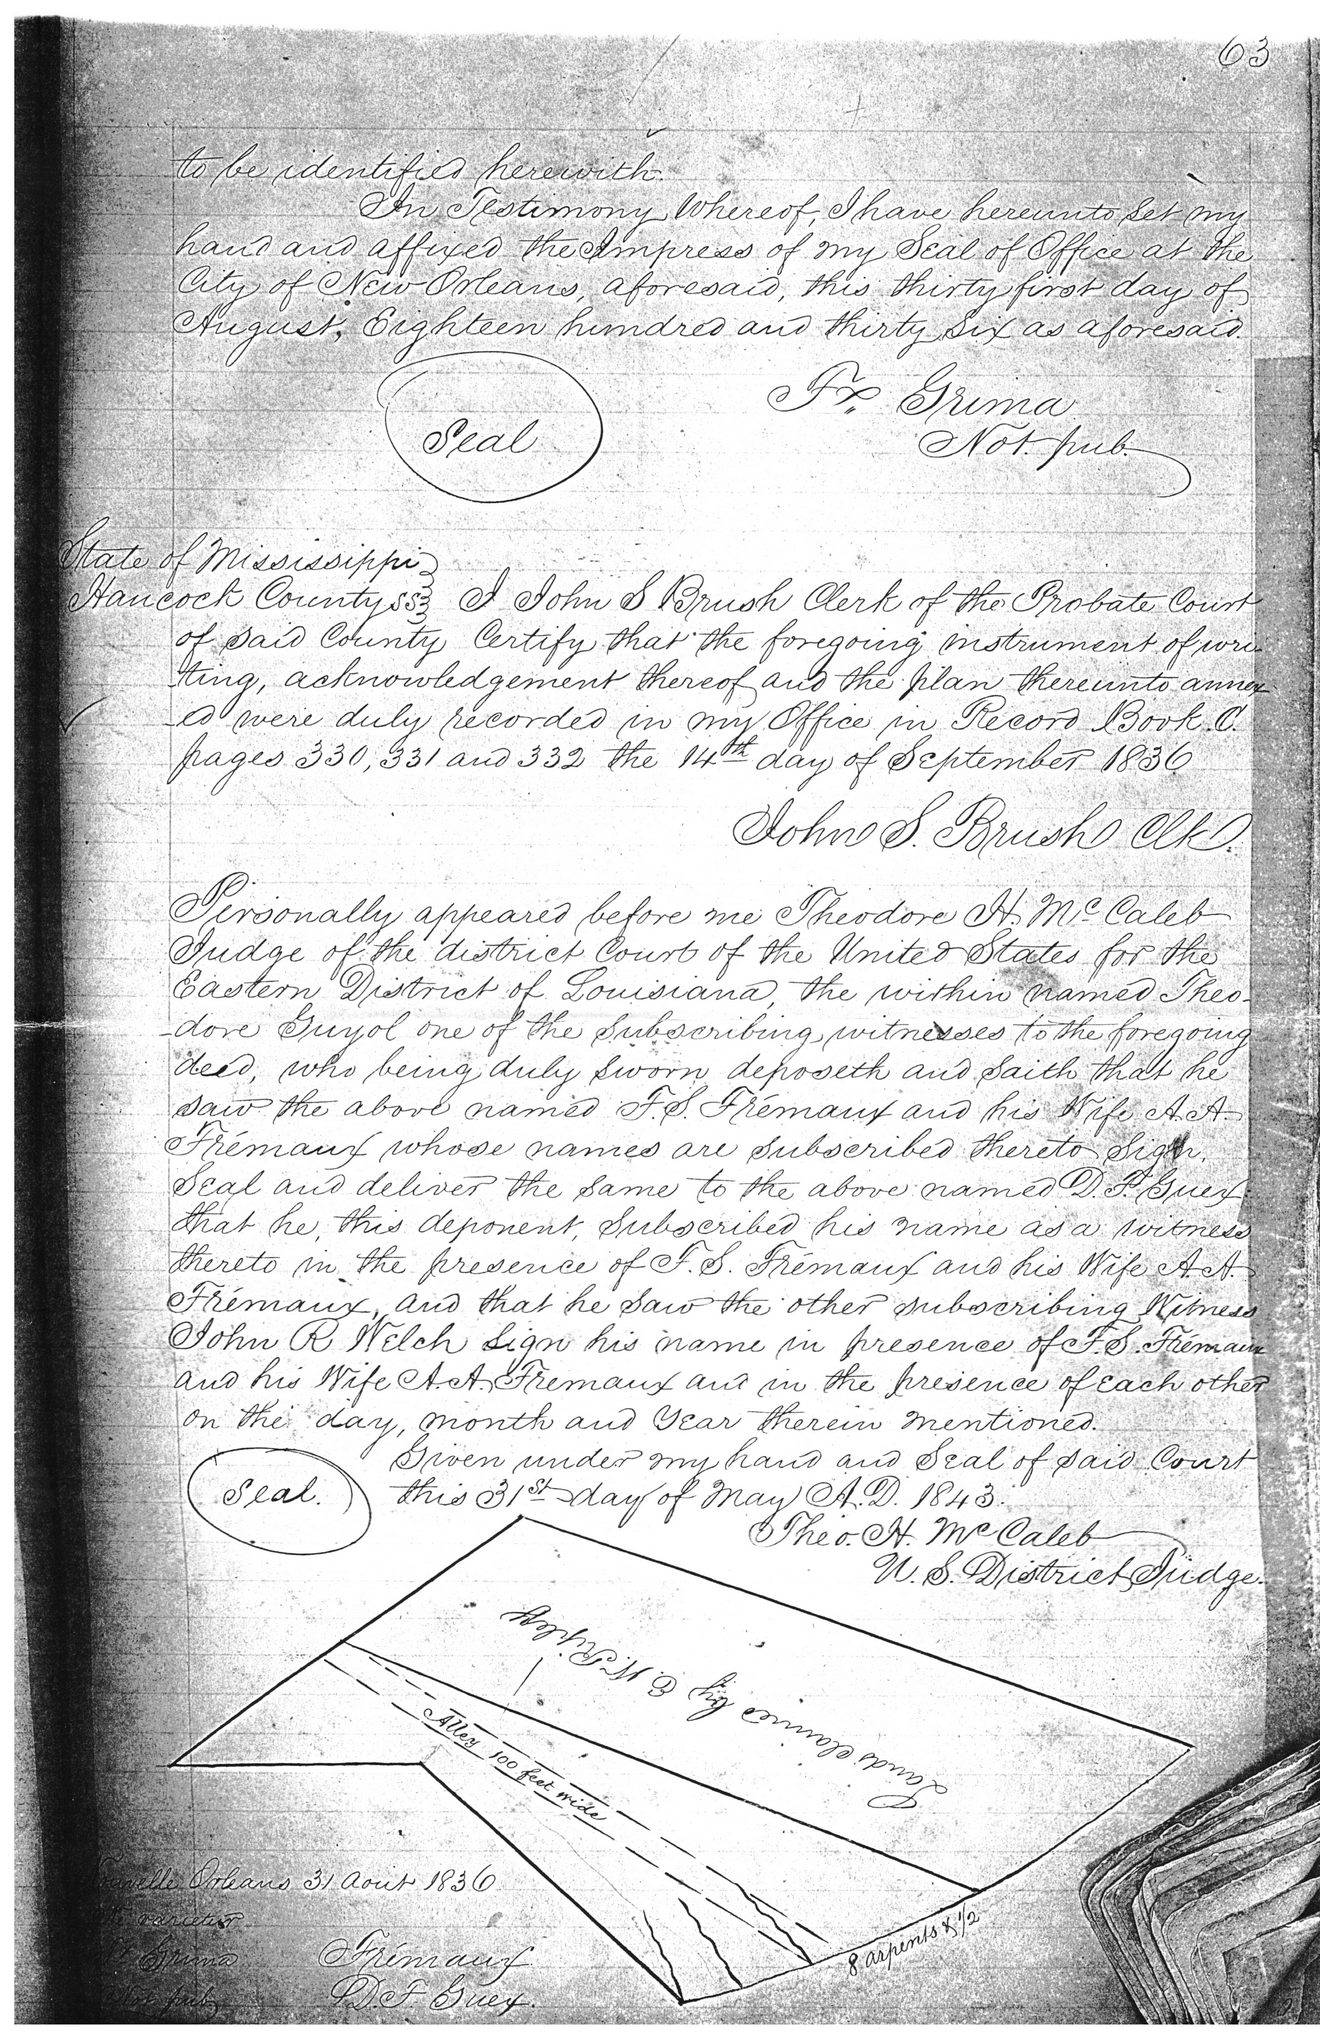 63
to be identified herewith.
In Testimony Whereof, I have hereunto Set my
hand and affixed the Impress of my Seal of Office at the
City of New Orleans, aforesaid, this thirty first day of
August, Eighteen hundred and thirty Six as aforesaid.
Seal
Fx. Grima
Not. pub.
State of Mississippi
Hancock County ss I John S Brush Clerk of the Probate Court
of said County Certify that the foregoing instrument of wri-
-ting, acknowledgement thereof and the plan thereunto annex-
-ed were duly recorded in my Office in Record Book. C.
pages 330, 331 and 332 the 14th day of September 1836
John S. Brush Clk.
Personally appeared before me Theodore H. McCaleb
Judge of the district Court of the United States for the
Eastern District of Louisiana, the within named Theo-
-dore Guyol one of the Subscribing witnesses to the foregoing
deed, who being duly sworn deposeth and Saith that he
saw the above named F. S. Frémaux and his Wife A. A.
Frémaux whose names are subscribed thereto Sign,
Seal and deliver the same to the above named D. F. Guex;
that he, this deponent, Subscribed his name as a witness
thereto in the presence of F. S. Frémaux and his Wife A. A.
Frémaux, and that he saw the other subscribing Witness
John R Welch sign his name in presence of F. S. Frémaux
and his Wife A. A. Fremaux and in the presence of each other
on the day, month and Year therein mentioned.
Given under my hand and Seal of said Court
this 31st day of May A. D. 1843.
Seal.
Theo. H. McCaleb
U. S. District Judge.
Lands claimed by E. W. Ripley
Alley 100 feet wide
8 arpents & 1/2
Nouvelle Orleans 31 Aout 1836
Ne varietur
Grima
Not. pub.
Frémaux
D. F. Guex.